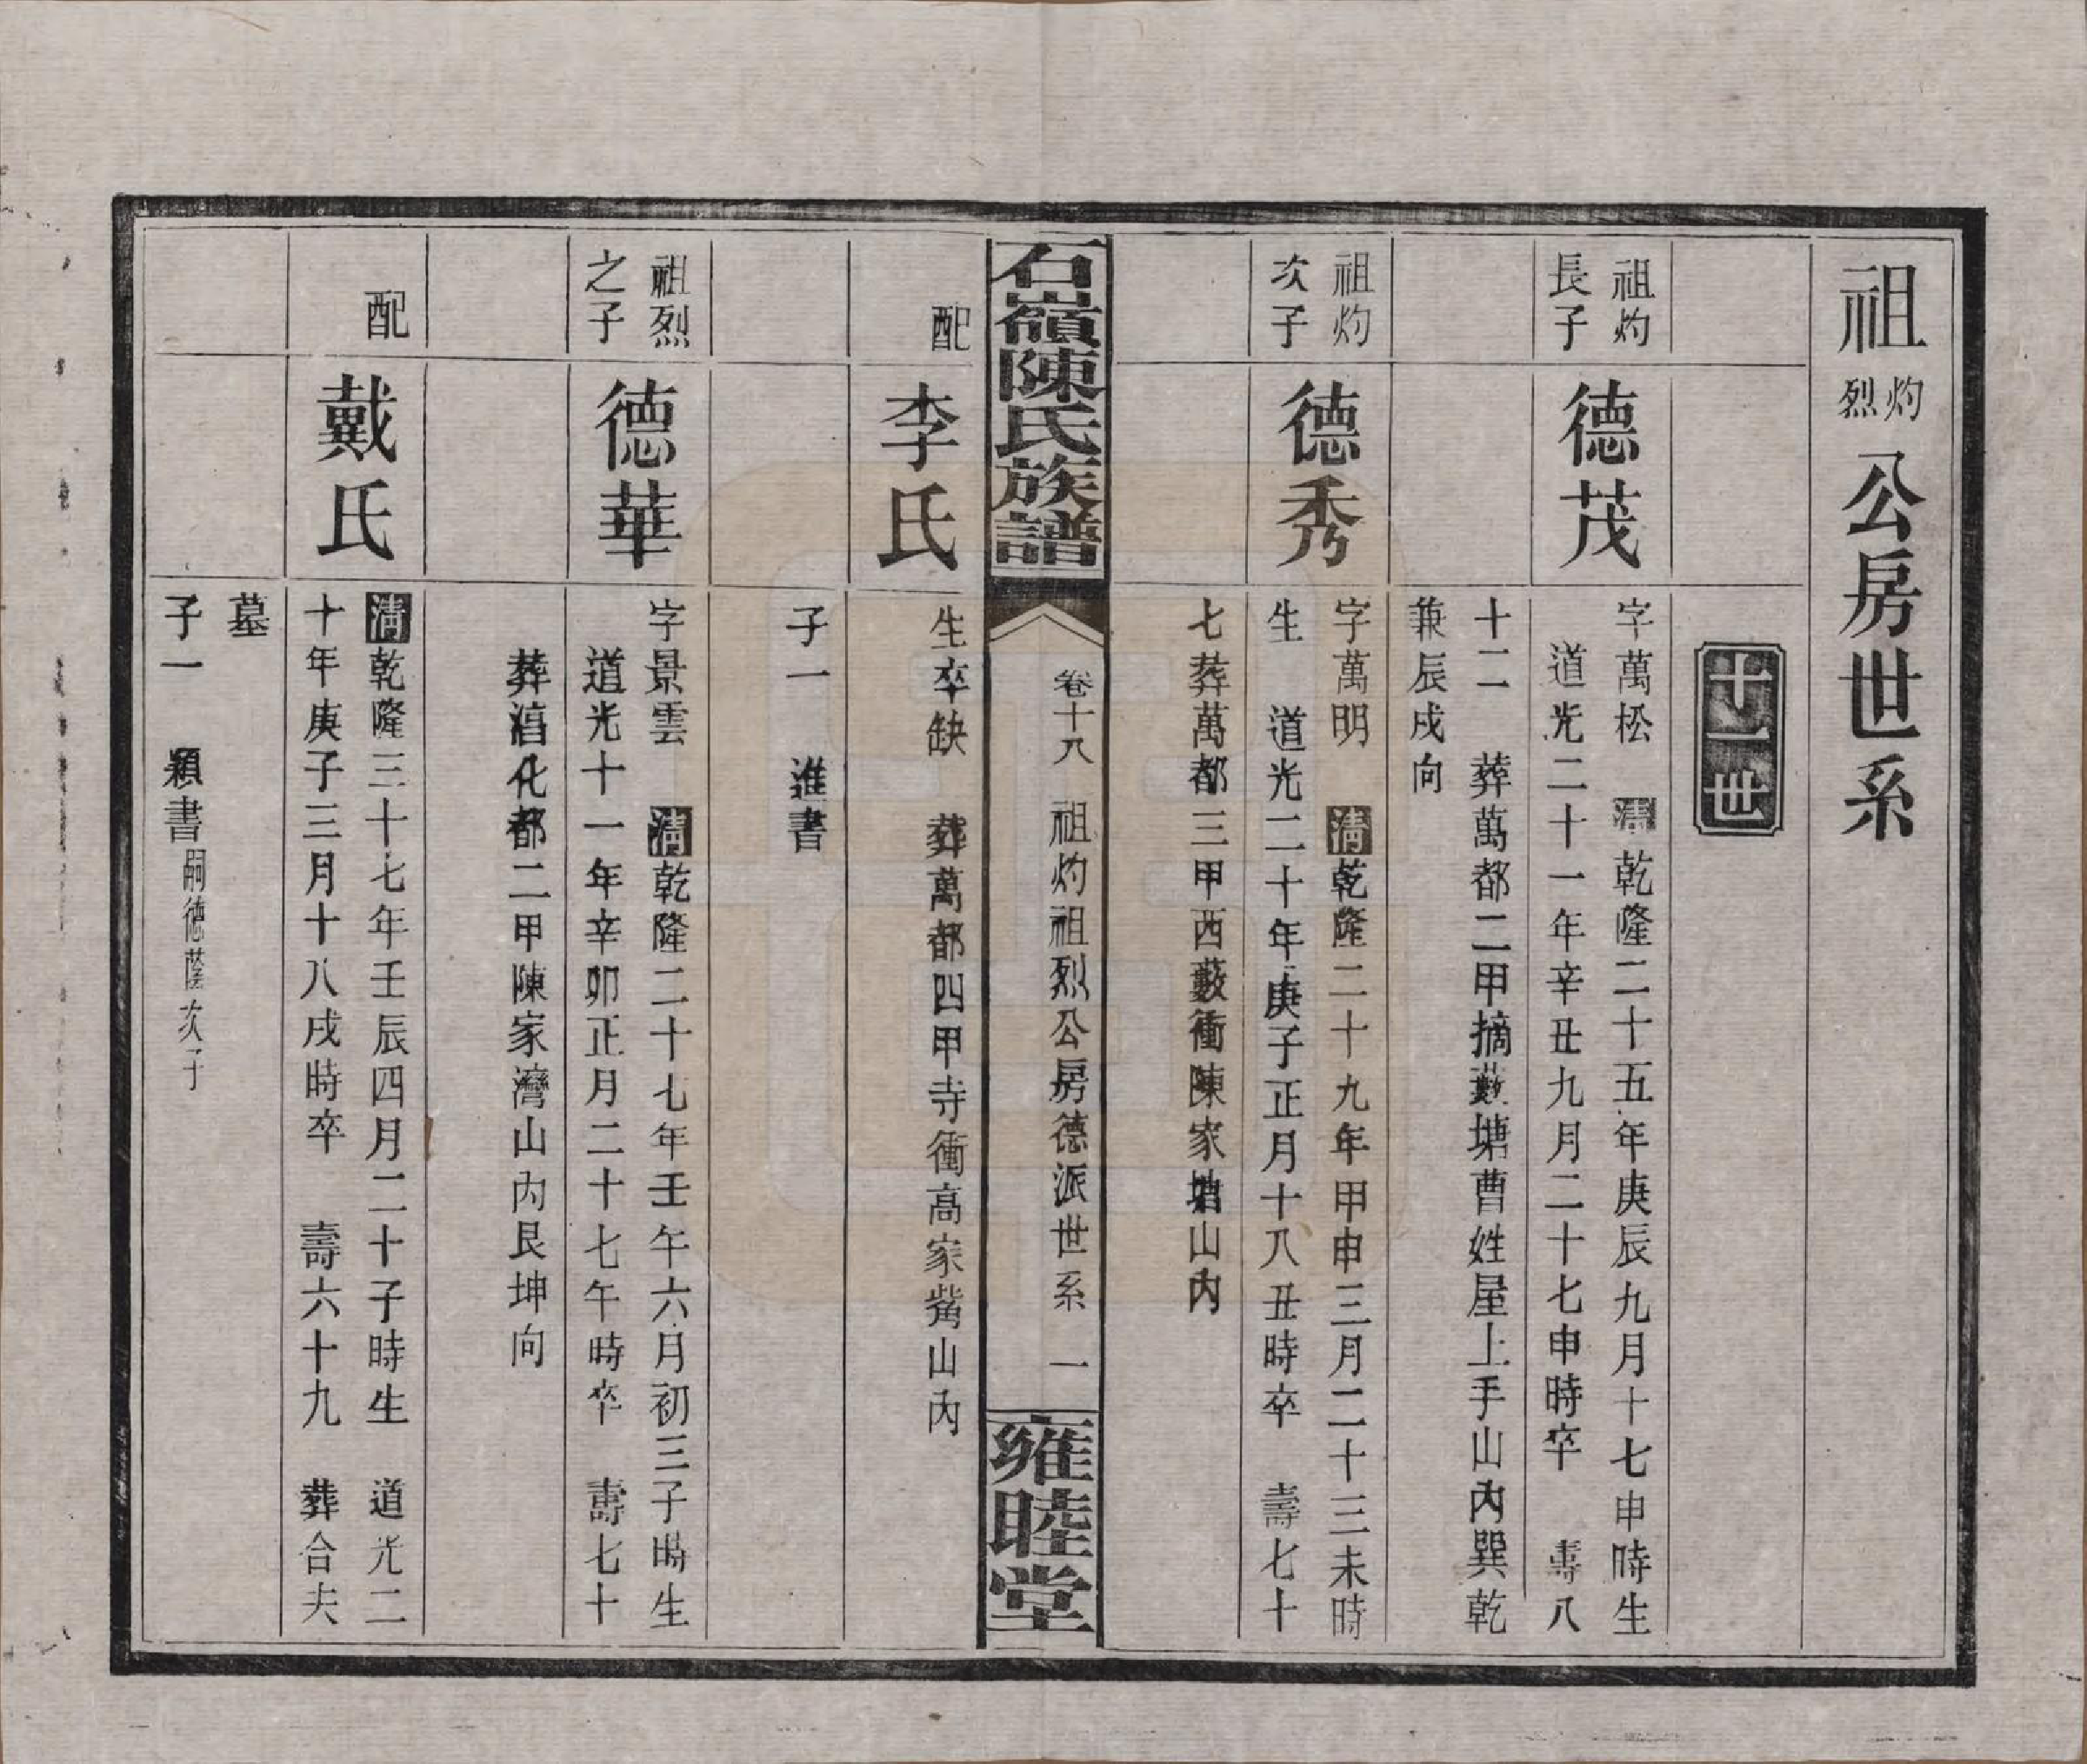 祖灼烈公房世系
十一世
祖灼
長子
德茂
字萬松 清乾隆二十五年庚辰九月十七申時生
道光二十一年辛丑九月二十七申時卒 壽八
十二 葬萬都二甲摘藪塘曹姓屋上手山內巽乾
兼辰戌向
祖灼
次子
德秀
字萬明 清乾隆二十九年甲申三月二十三未時
生 道光二十年庚子正月十八丑時卒 壽七十
七葬萬都三甲西藪衝陳家塘山內
石嶺陳氏族譜
卷十八 祖灼祖烈公房德派世系 一
雍睦堂
配
李氏
生卒缺 葬萬都四甲寺衝高家嘴山內
子一 進書
祖烈
之子
德華
字景雲 清乾隆二十七年壬午六月初三子時生
道光十一年辛卯正月二十七午時卒 壽七十
葬湻化都二甲陳家灣山內艮坤向
配
戴氏
清乾隆三十七年壬辰四月二十子時生 道光二
十年庚子三月十八戌時卒 壽六十九 葬合夫
墓
子一 顯書嗣德蔭次子